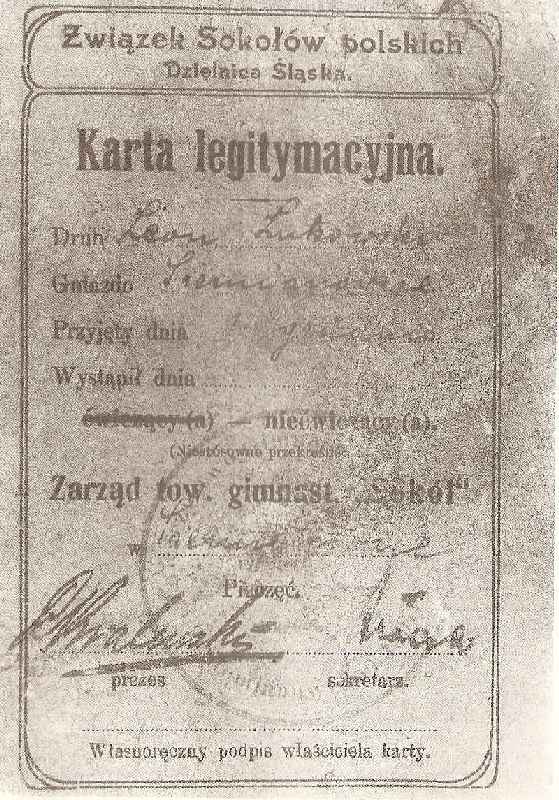 Związek Sokołów polskich
Dzielnica Śląska.
Karta legitymacyjna.
Druh Leon Żukowski
Gniazdo
Przyjęty dnia
Wystąpił dnia
ćwiczący (a) — niećwiczący (a).
(Niestosowne przekreślić
Zarząd tow. gimnast. „Sokół"
w
Pieczęć.
prezes sekretarz.
Własnoręczny podpis właściciela karty.